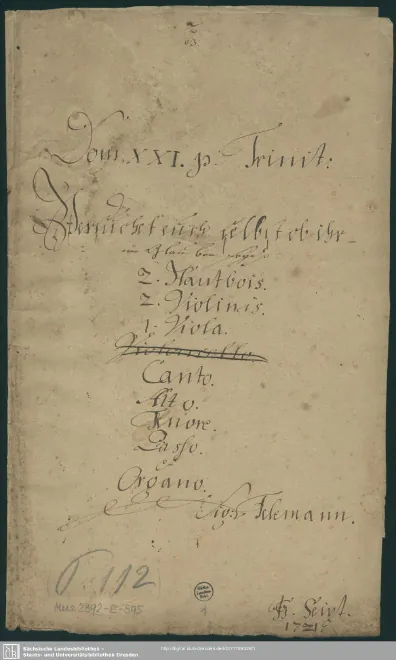 Dom. XXI. p. Trinit:
Versuchet euch selbst ob ihr
im Glauben
2. Hautbois.
2. Violinis.
1. Viola.
Violoncello
Canto.
Alto.
Tenore.
Basso.
Organo.
Sigr. Telemann.
T. 112
Mus. 2392-E-595
1
Sächsische Landesbibliothek -
Staats- und Universitätsbibliothek Dresden